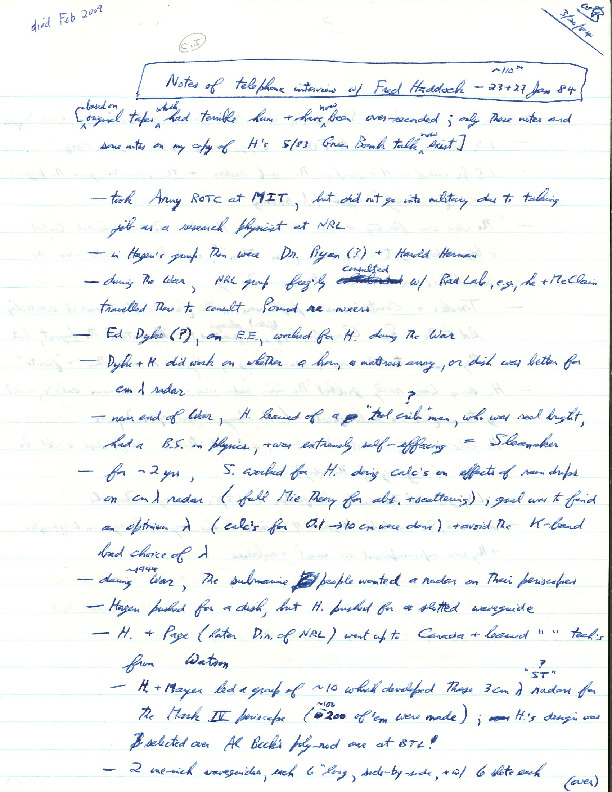 died Feb 2009
WTS
3/20/04
C.I
~110m
Notes of telephone interview w/ Fred Haddock - 23+27 Jan 84
[based on original tapes which had terrible hum + have now been over-recorded; only these notes and
some notes on my copy of H's 5/83 Green Bank talk now exist]
- took Army ROTC at MIT, but did not go into military due to taking
job as a research physicist at NRL
- in Hagen's group then were Dr. Ryan (?) + Harold Herman
- during the War, NRL group freely consulted w/ Rad Lab, e.g., he + McClain
travelled there to consult Pound re mixers
- Ed Dyke (?), an E.E., worked for H. during the War
- Dyke + H. did work on whether a horn, a mattress array, or dish was better for
cm λ radar
- near end of War, H. learned of a "tool crib"? man, who was real bright,
had a B.S. in physics, + was extremely self-effacing =
- for ~2 yrs, S. worked for H. doing calc's on effects of rain drops
on cm λ radar (full Mie Theory for abs. + scattering), goal was to find
an optimum λ (calc's for 0.1 → 10 cm were done) + avoid the K-band
bad choice of λ
- during ~1944 War, the submarine people wanted a radar on their periscopes
- Hagen pushed for a dish, but H. pushed for a slotted waveguide
- H. + Page (later Dir. of NRL) went up to Canada + learned " " tech's
from Watson
- H. + Mayer led a group of ~10 which developed these 3 cm λ "ST"? radars for
the Mark IV periscope (~100-200 of 'em were made); H.'s design was
selected over Al Beck's poly-rod one at BTL!
- 2 one-inch waveguides, each 6" long, side-by-side, + w/ 6 slots each
(over)